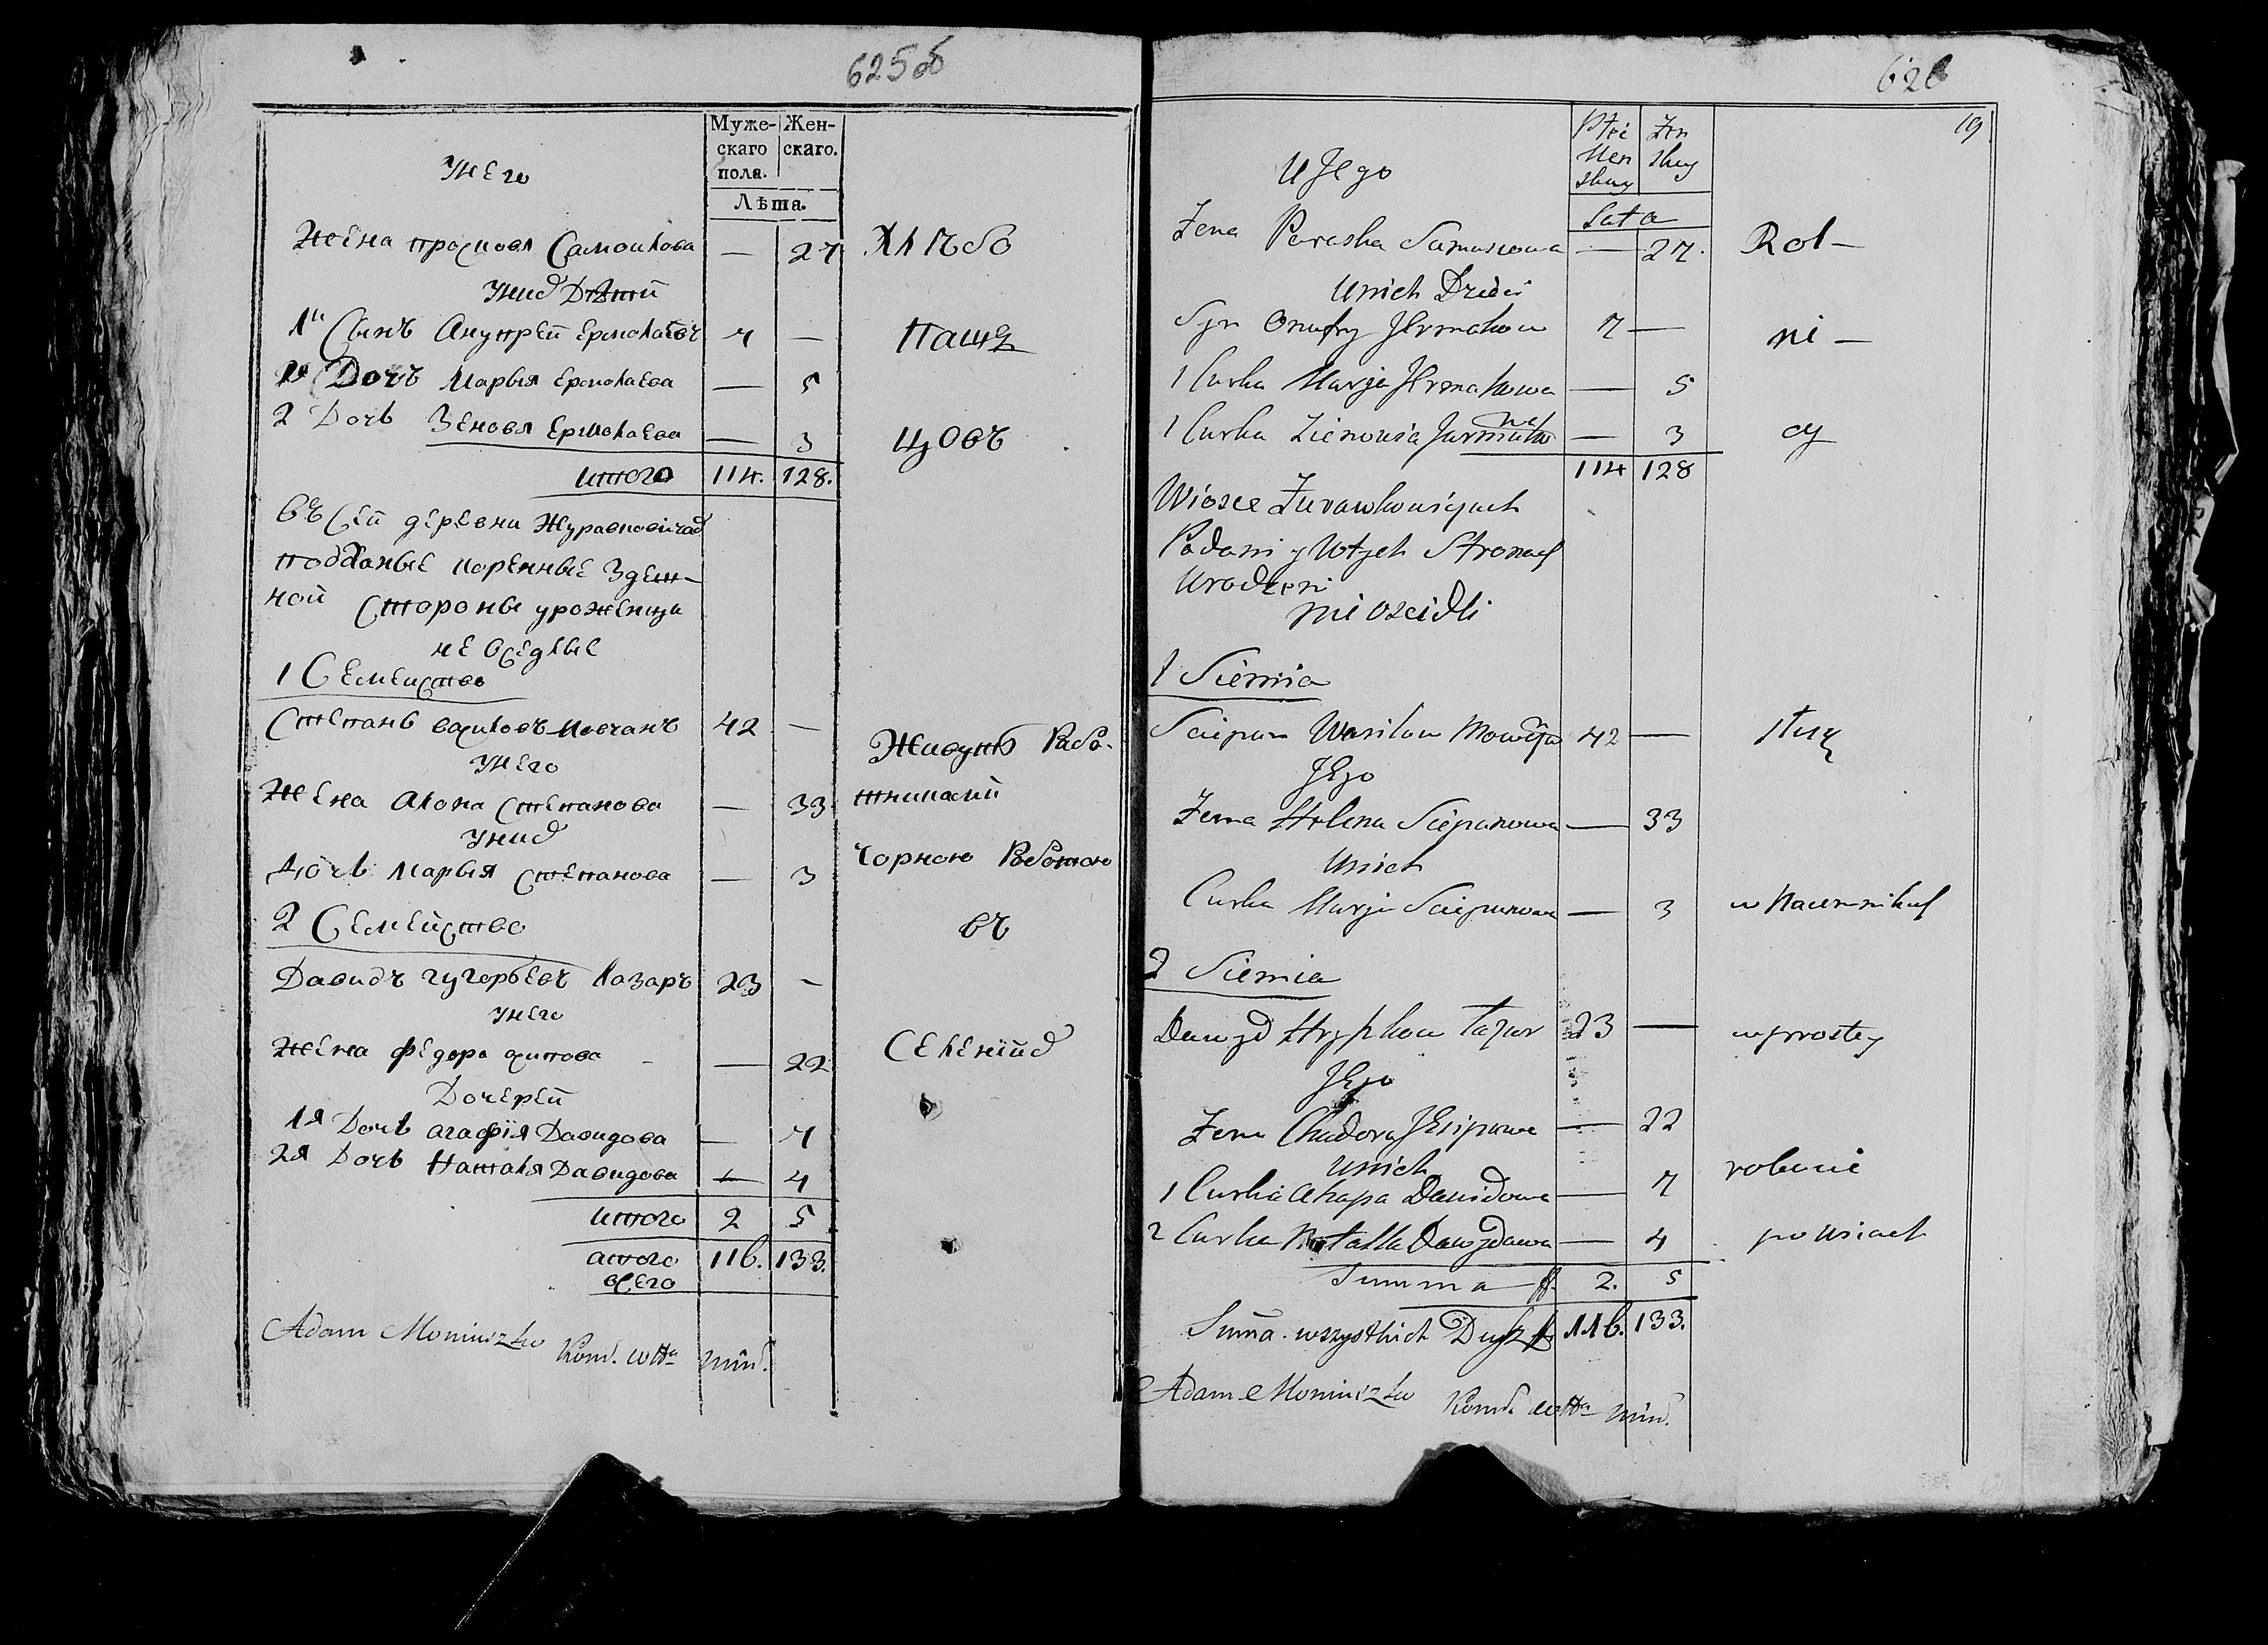 625об
Муже- Жен-
скаго скаго.
пола.
Лѣта.
У него
Жена просковя Самоилова — 27 Хлѣбо
У них Дѣтй
1й Сынъ Анупрей Ермолаевъ 7 — Паще
1я Дочъ Марья Ермолаева — 5
2 Дочь Зеновя Ермолаева — 3 цовъ
итого 114. 128.
въ сей деревни Журавковичах
подданые коренные Здеш-
ной стороны уроженцы
не оседлые
1 Семейство
Степанъ василовъ Мовчанъ 42 — Живутъ Рабо-
У него
Жена Алона Степанова — 33 тниками
У них
Дочь Марья Степанова — 3 Чорною Роботою
2 Семейство въ
Давидъ гугорьевъ Лазаръ 23 —
У него
Жена федора осипова — 22 Селенйих
Дочерей
1я Дочь агафія Давидова — 7
2я Дочь Наталя Давидова — 4
итого 2 5
итого 116. 133.
всего
Adam Moniuszko Kom. min.
626
19
Płci Żen
Męn skiey
skiey
Lata
U Jego
Żona Paraska Samusiowa — 27. Rol-
U nich Dzieci
Syn Onufry Jermakow 7 — ni-
1 Curka Marja Jermakowa — 5
1 Curka Zienowia Jarmako wa — 3 cy
114 128
Wiosce Żurawkowicach
Podani y w tych Stronach
Urodzeni
nie osiedli
1 Siemia
Sciepan Wasilow 42 — służą
Jego
Żona Helena Sciepanowa — 33
U nich
Curka Marja Sciepanowa — 3 w Naiemnikach
2 Siemia
Dawyd Hryhkow Łazar 23 — w prostey
Jego
Żona Chwadora Jesipowa — 22
U nich robocie
1 Curka Ahapa Dawidowa — 7
2 Curka Natalla Dawydowa — 4 po wsiach
Summa 2. 5
Suma wszystkich Dusz 116. 133.
Adam Moniuszko Kom. min.